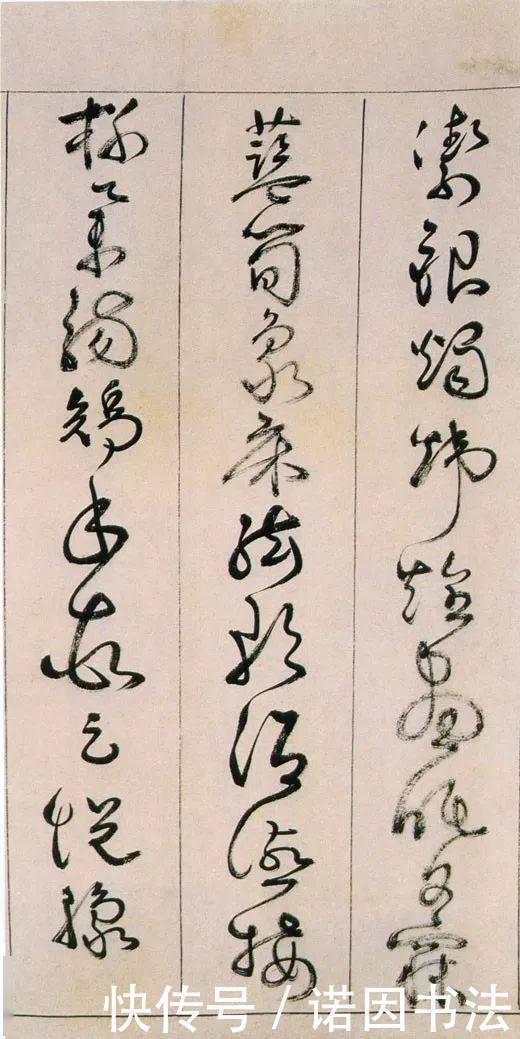 潔銀燭煒煌晝眠夕寐
藍筍象床絃歌酒讌接
杯舉觴矯手頓足悅豫
快传号 / 诺因书法